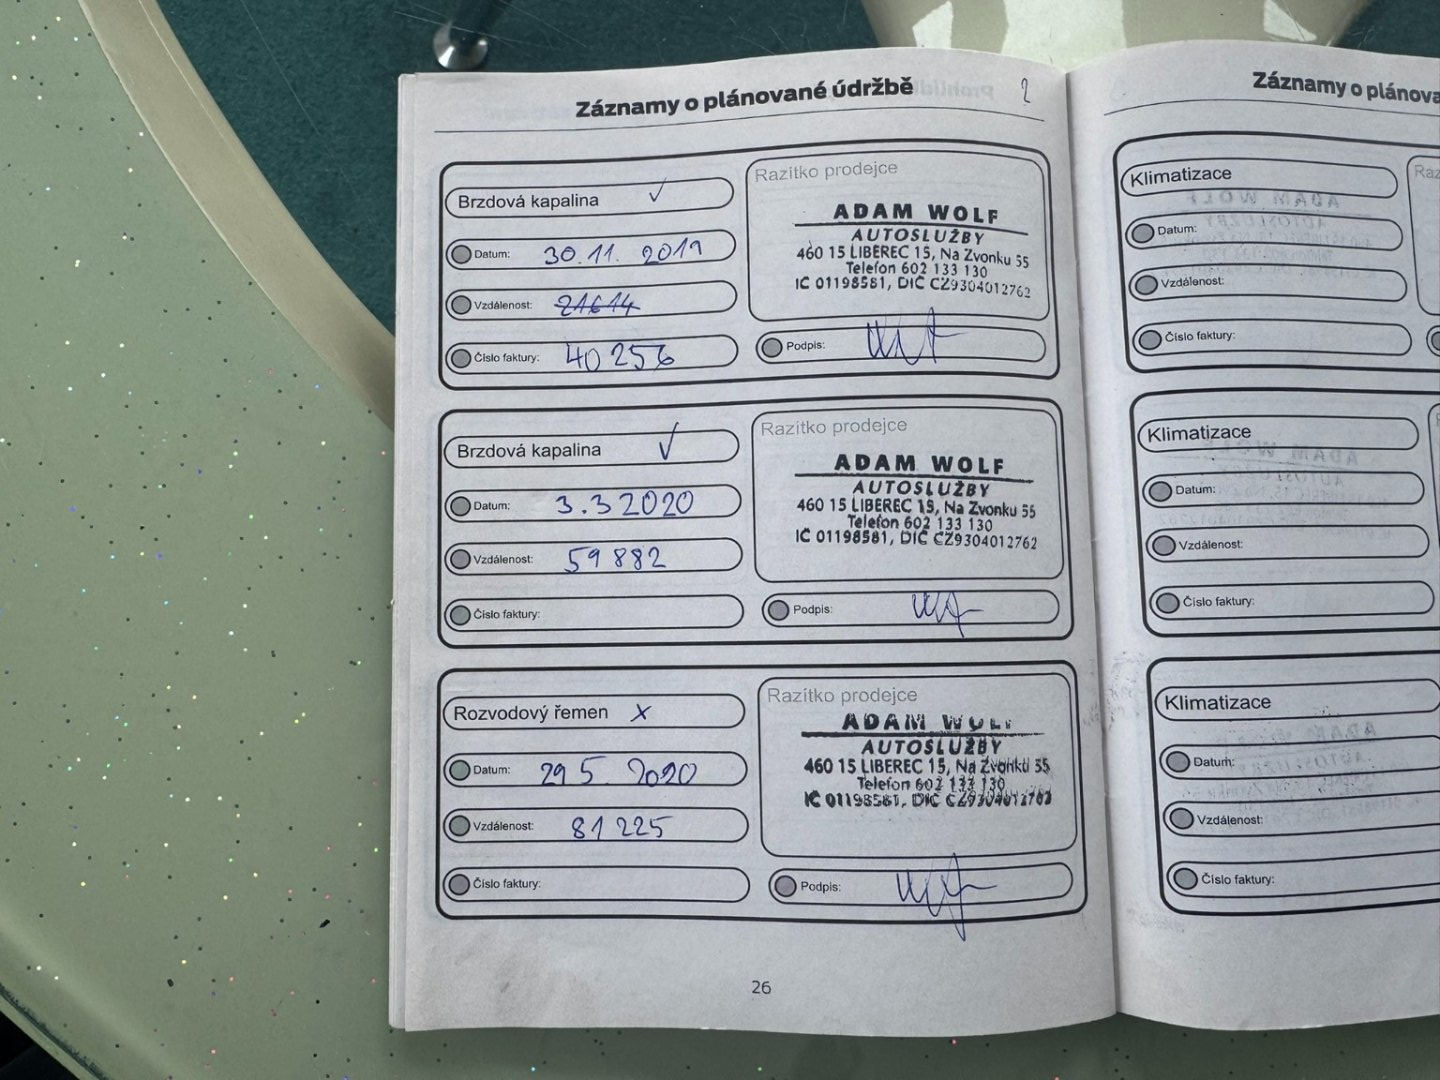 Záznamy o plánované údržbě
2
Brzdová kapalina ✓
Datum: 30.11. 2019
Vzdálenost: 21614
Číslo faktury: 40 256
Razítko prodejce
ADAM WOLF
AUTOSLUŽBY
460 15 LIBEREC 15, Na Zvonku 55
Telefon 602 133 130
IČ 01198581, DIČ CZ9304012762
Podpis:
Brzdová kapalina ✓
Datum: 3.3 2020
Vzdálenost: 59 882
Číslo faktury:
Razítko prodejce
ADAM WOLF
AUTOSLUŽBY
460 15 LIBEREC 15, Na Zvonku 55
Telefon 602 133 130
IČ 01198581, DIČ CZ9304012762
Podpis:
Rozvodový řemen x
Datum: 29 5. 2020
Vzdálenost: 81 225
Číslo faktury:
Razítko prodejce
ADAM WOLF
AUTOSLUŽBY
460 15 LIBEREC 15, Na Zvonku 55
Telefon 602 133 130
IČ 01198581, DIČ CZ9304012762
Podpis:
26
Záznamy o plánova
Klimatizace
Datum:
Vzdálenost:
Číslo faktury:
Raz
Klimatizace
Datum:
Vzdálenost:
Číslo faktury:
Klimatizace
Datum:
Vzdálenost:
Číslo faktury: